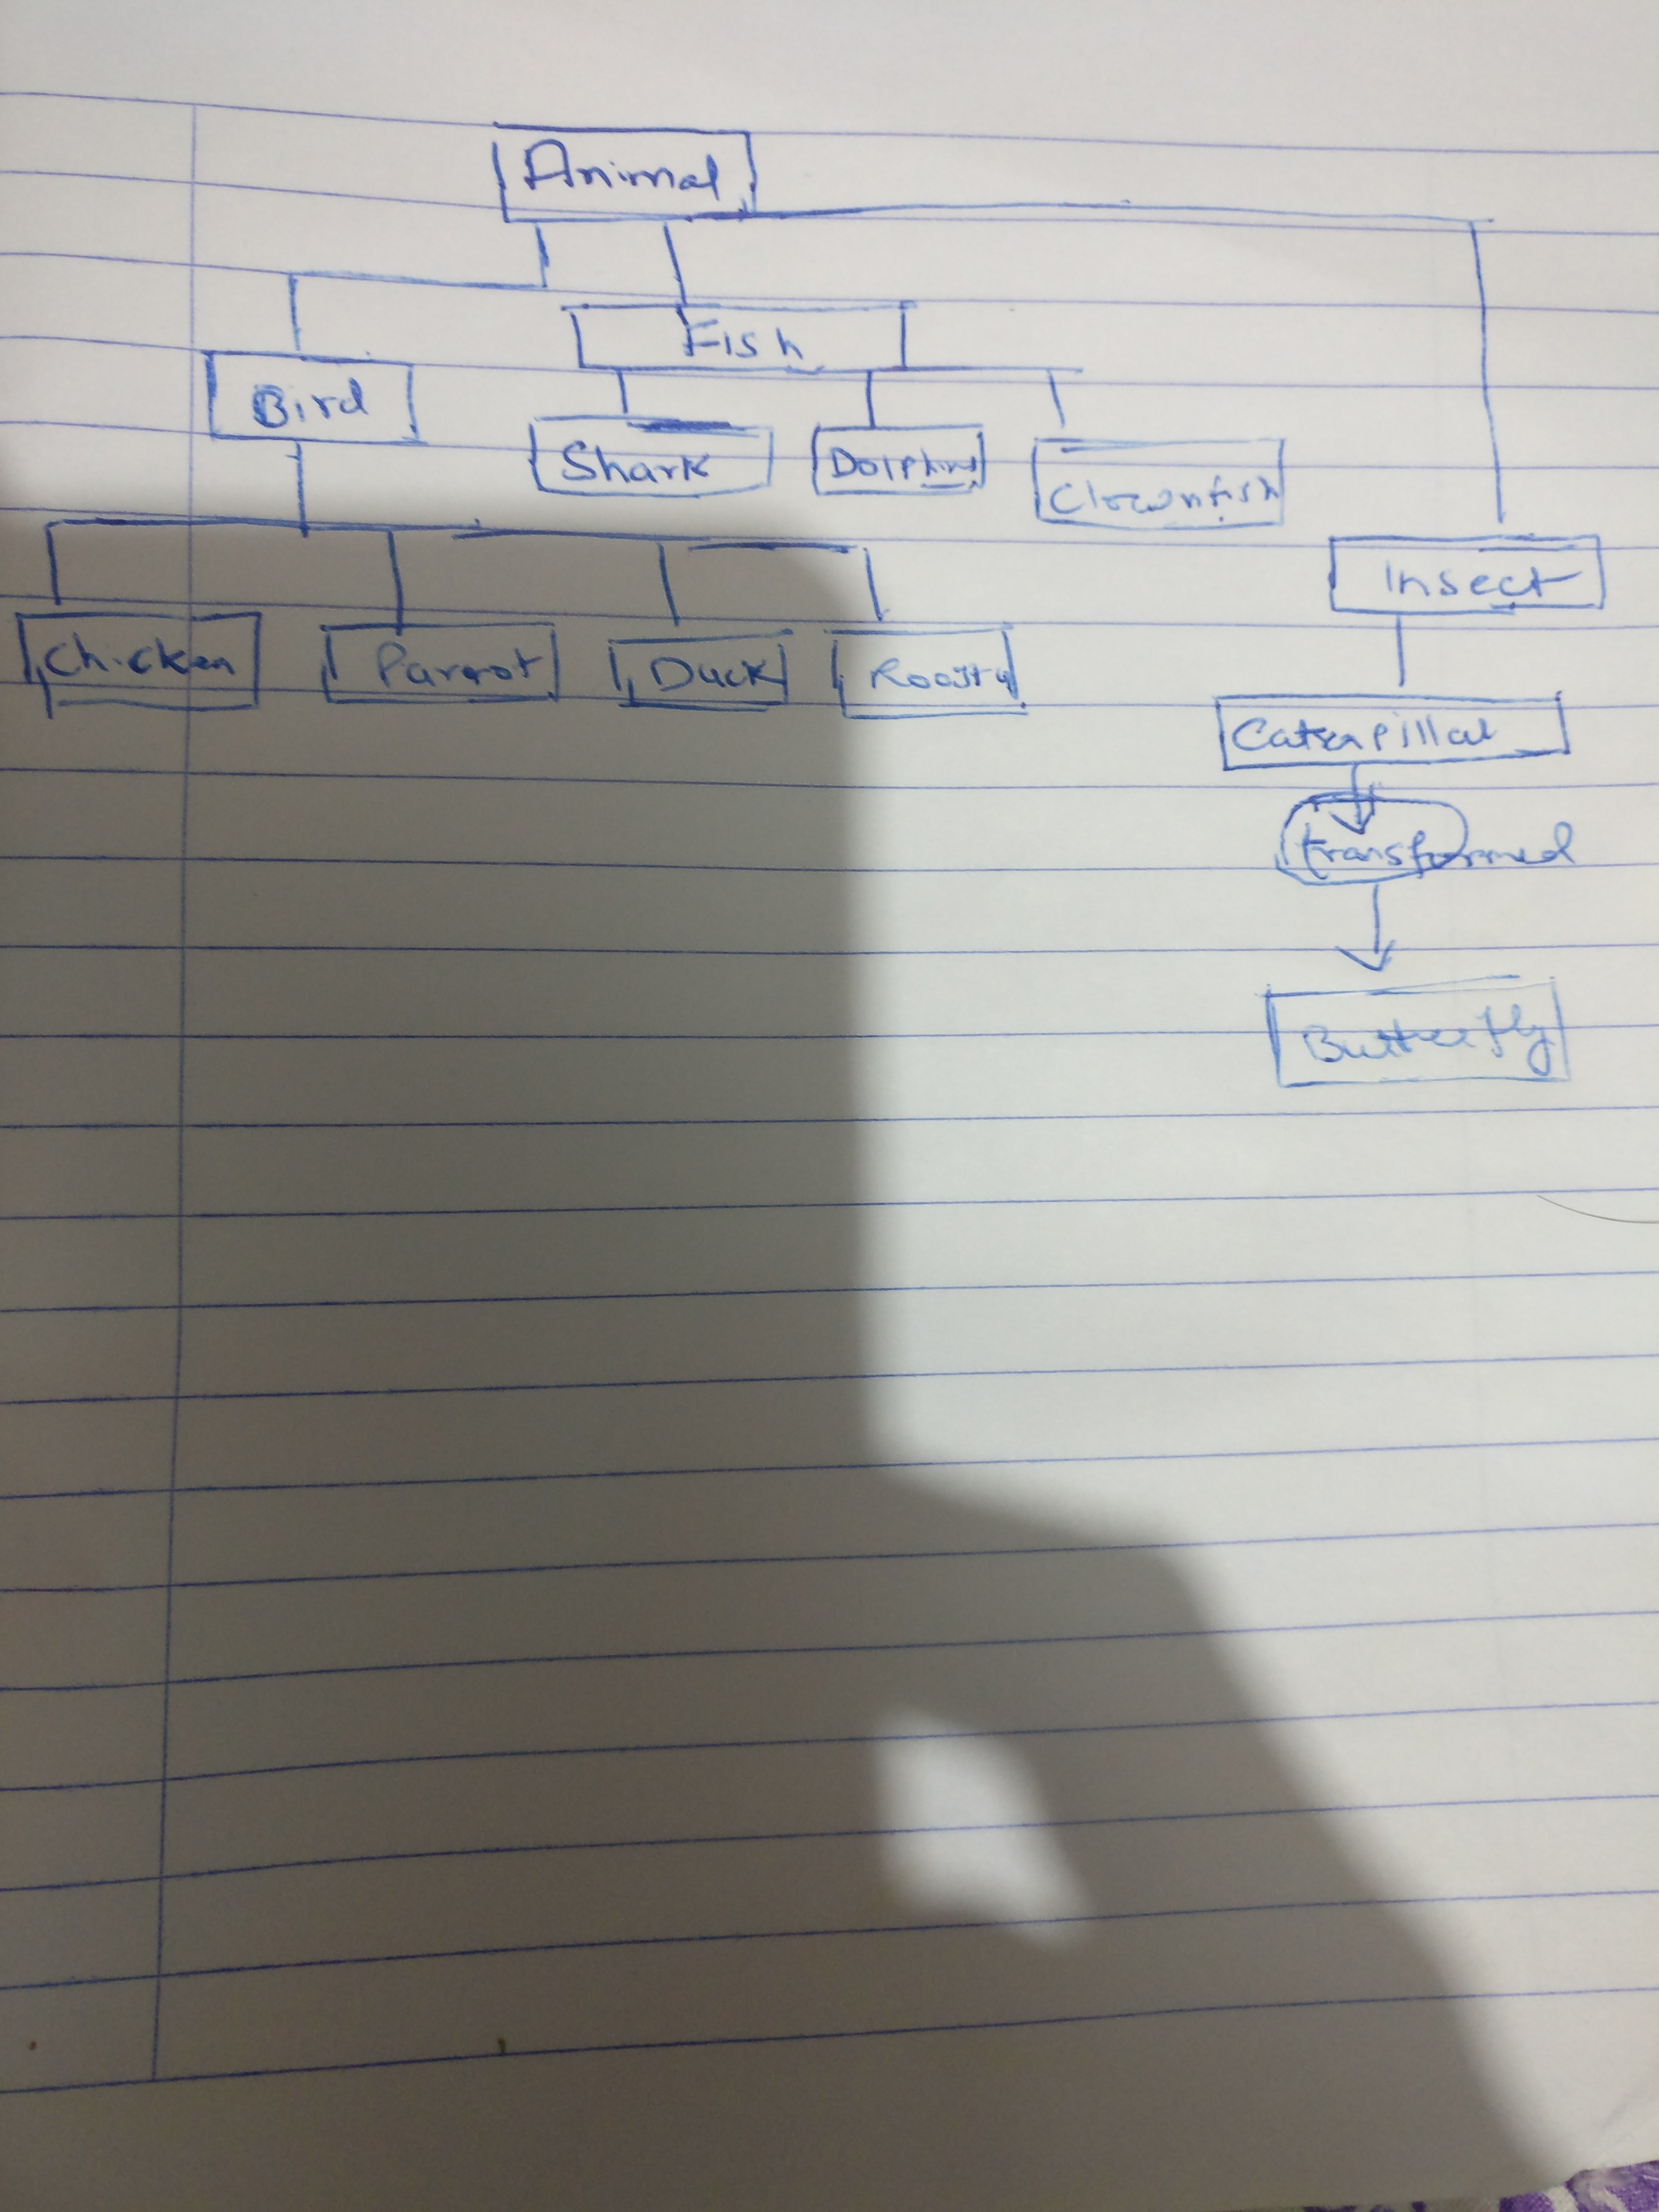 Animal
Fish
Bird
Shark
Dolphins
Clownfish
Insect
Chicken
Parrot
Duck
Caterpillar
transformed
Butterfly